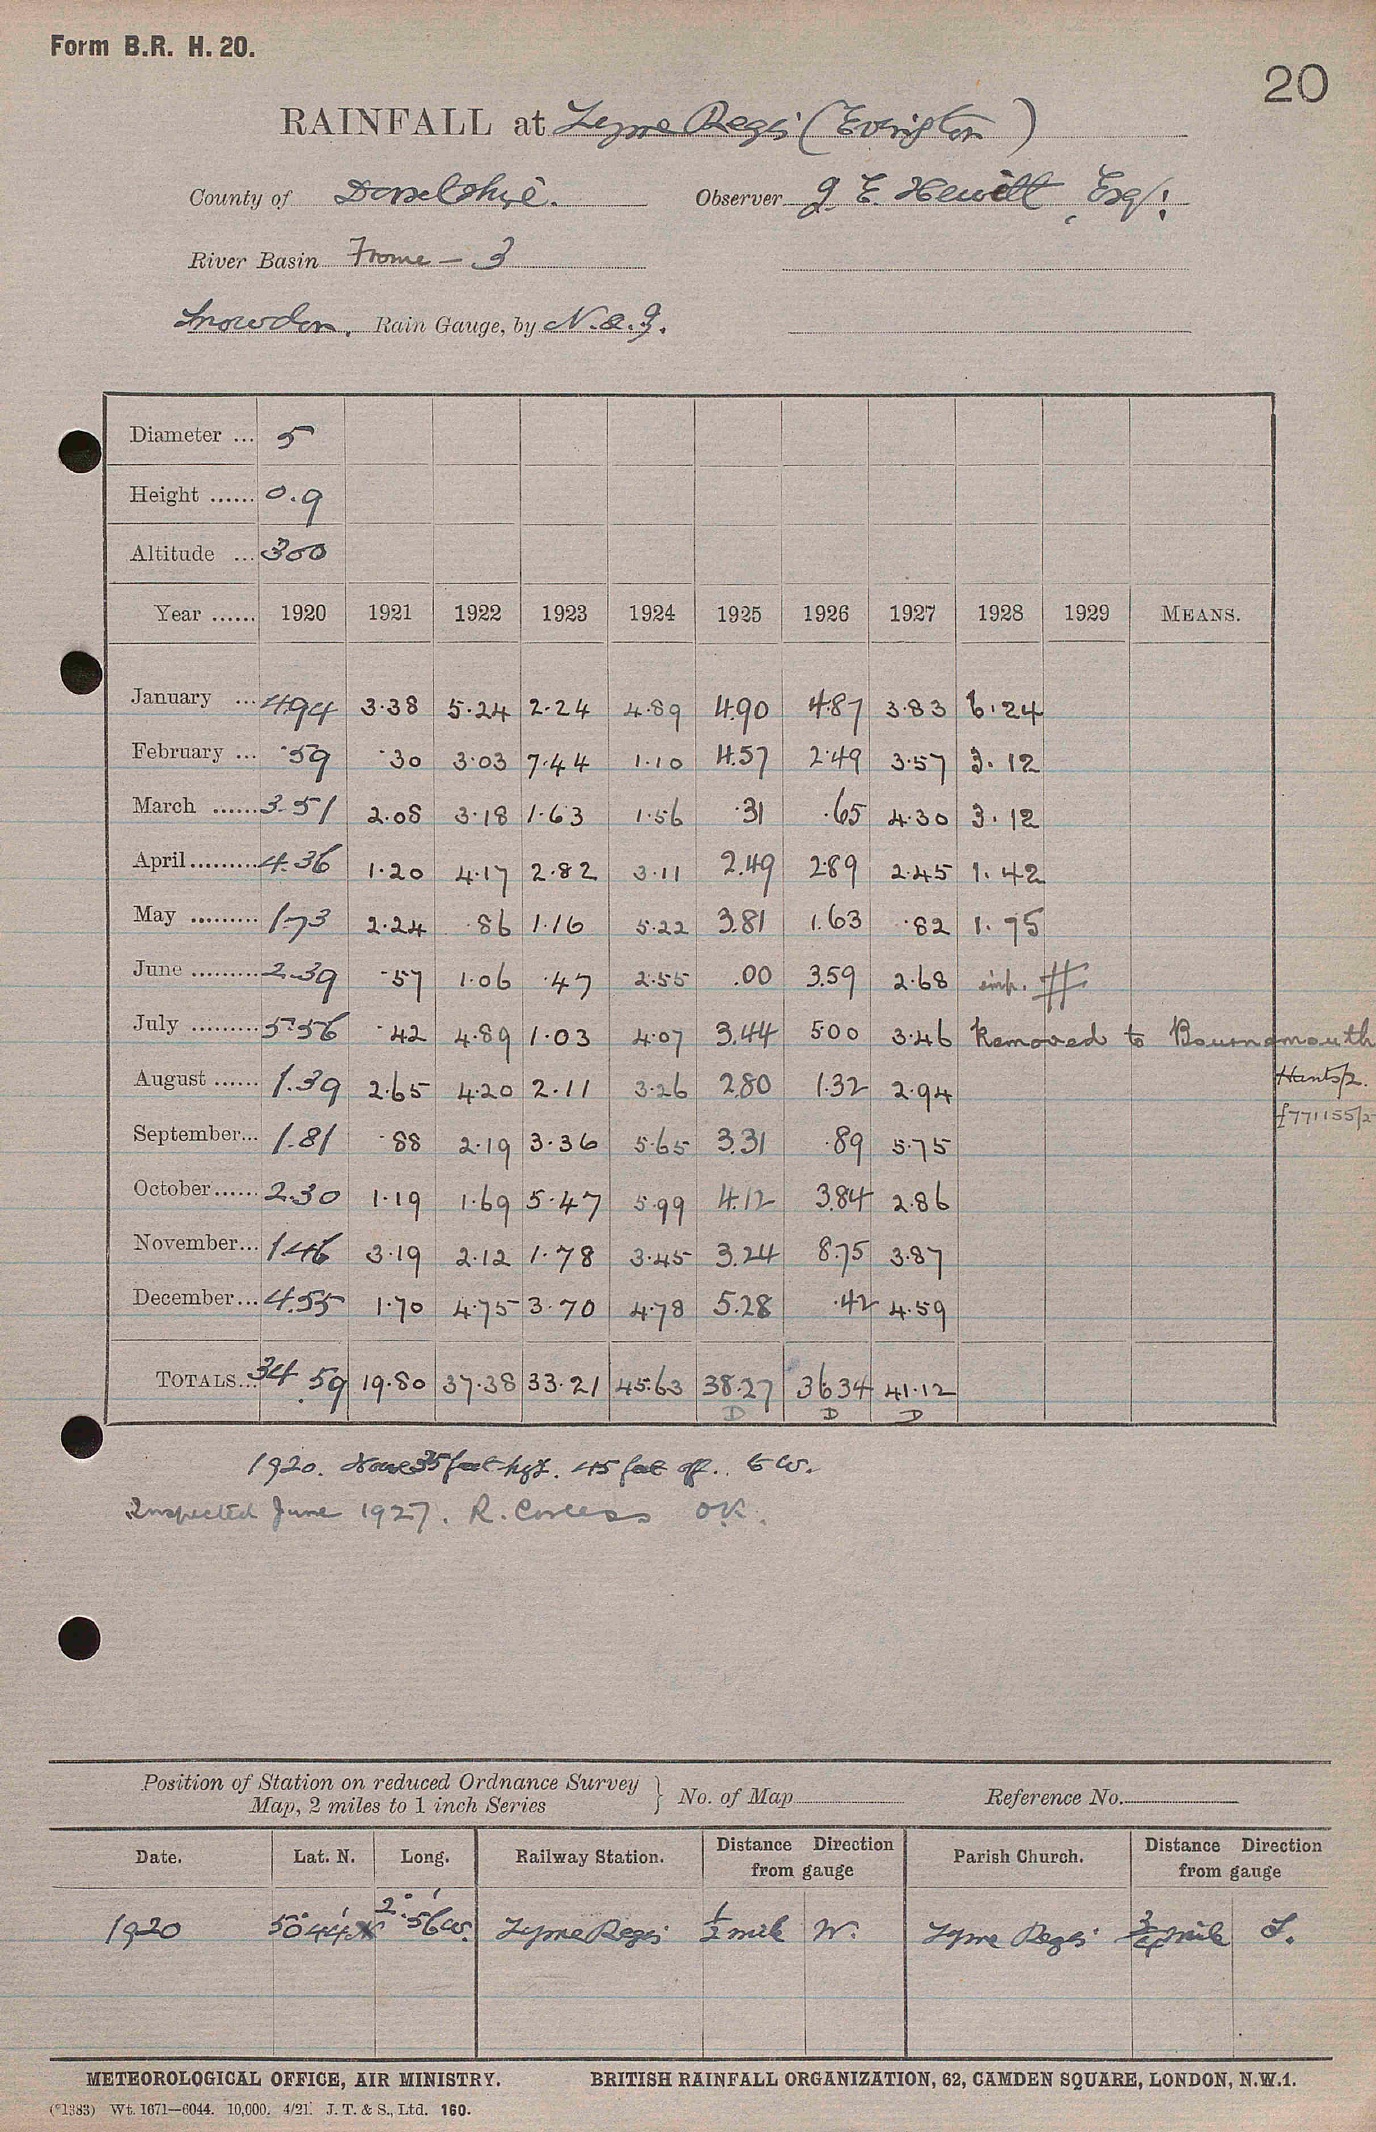 Form B.R. H. 20.
20
RAINFALL at Lyme Regis (Evington)
County of Dorsetshire. Observer J. E. Hewitt, Esq:
River Basin Frome — 3
Snowdon. Rain Gauge, by N. & Z.
Diameter ... 5
Height ...... 0.9
Altitude ... 300
Year ...... 1920 1921 1922 1923 1924 1925 1926 1927 1928 1929 MEANS.
January ... 4.94 3.38 5.24 2.24 4.89 4.90 4.87 3.83 6.24
February ... .59 .30 3.03 7.44 1.10 4.57 2.49 3.57 3.12
March ...... 3.51 2.08 3.18 1.63 1.56 .31 .65 4.30 3.12
April ......... 4.36 1.20 4.17 2.82 3.11 2.49 2.89 2.45 1.42
May ......... 1.73 2.24 .86 1.16 5.22 3.81 1.63 .82 1.75
June ......... 2.39 .57 1.06 .47 2.55 .00 3.59 2.68 imp. #
July ......... 5.56 .42 4.89 1.03 4.07 3.44 5.00 3.46 Removed to Bournemouth
August ...... 1.39 2.65 4.20 2.11 3.26 2.80 1.32 2.94 Hants/2.
f771155/2
September... 1.81 .88 2.19 3.36 5.65 3.31 .89 5.75
October ...... 2.30 1.19 1.69 5.47 5.99 4.12 3.84 2.86
November... 1.46 3.19 2.12 1.78 3.45 3.24 8.75 3.87
December... 4.55 1.70 4.75 3.70 4.78 5.28 .42 4.59
TOTALS... 34.59 19.80 37.38 33.21 45.63 38.27 36.34 41.12
D D D
1920. House 35 feet high. 45 feet off. to W.
Inspected June 1927. R. Corless OK.
Position of Station on reduced Ordnance Survey
Map, 2 miles to 1 inch Series } No. of Map Reference No.
Date. Lat. N. Long. Railway Station. Distance Direction from gauge Parish Church. Distance Direction from gauge
1920 50° 44' N 2° 56' W. Lyme Regis 1/2 mile W. Lyme Regis 3/4 mile S.
METEOROLOGICAL OFFICE, AIR MINISTRY. BRITISH RAINFALL ORGANIZATION, 62, CAMDEN SQUARE, LONDON, N.W.1.
(*1383) Wt. 1671—6044. 10,000. 4/21. J. T. & S., Ltd. 160.